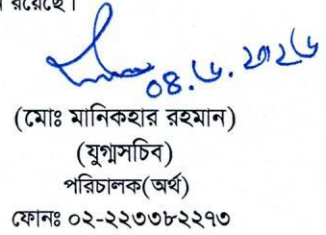 রয়েছে।
০৪.৬.২০২৬
(মোঃ মানিকহার রহমান)
(যুগ্মসচিব)
পরিচালক(অর্থ)
ফোনঃ ০২-২২৩৩৮২২৭৩